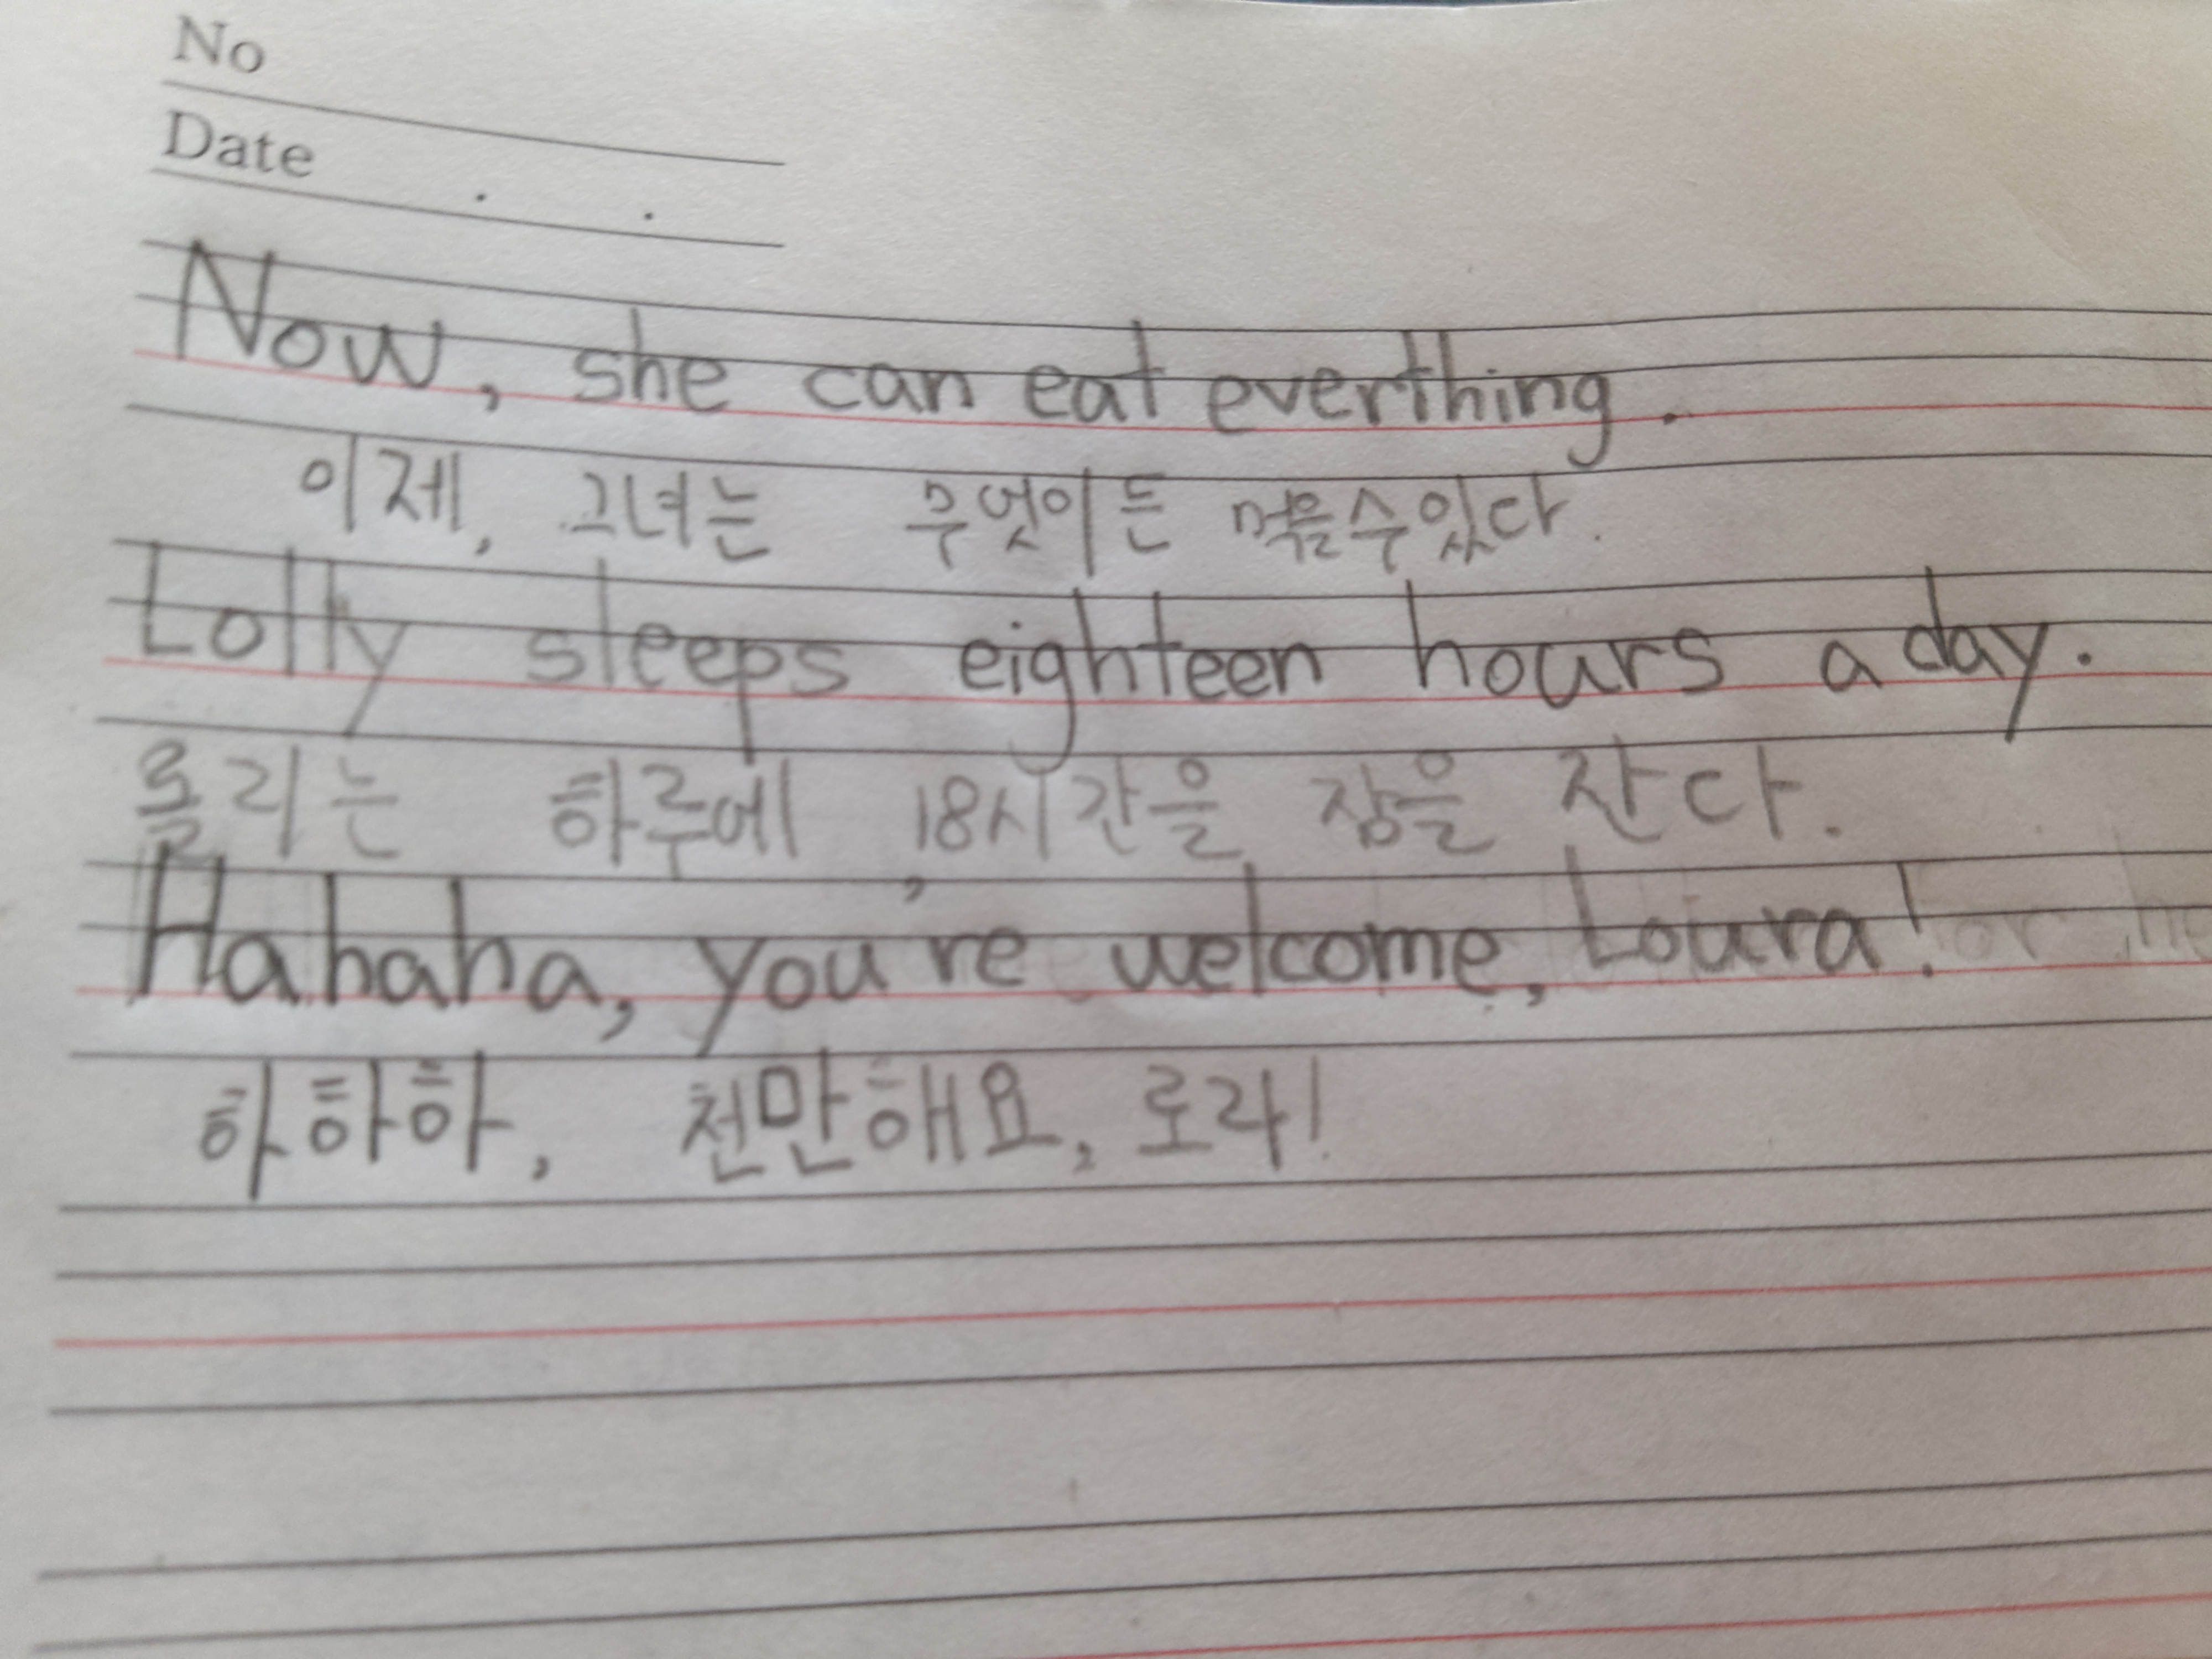 No
Date . .
Now, she can eat everthing.
이제, 그녀는 무엇이든 먹을수있다.
Lolly sleeps eighteen hours a day.
롤리는 하루에 18시간을 잠을 잔다.
Hahaha, you're welcome, Loura!
하하하, 천만해요, 로라!